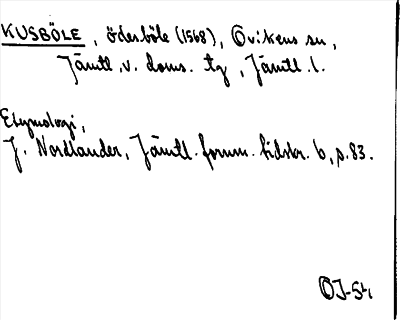 KUSBÖLE, ödesböle (1568), Ovikens sn,
Jämtl. v. doms. tg, Jämtl. l.
Etymologi,
J. Nordlander, Jämtl. fornm. tidskr. 6, p. 83.
OJ-54